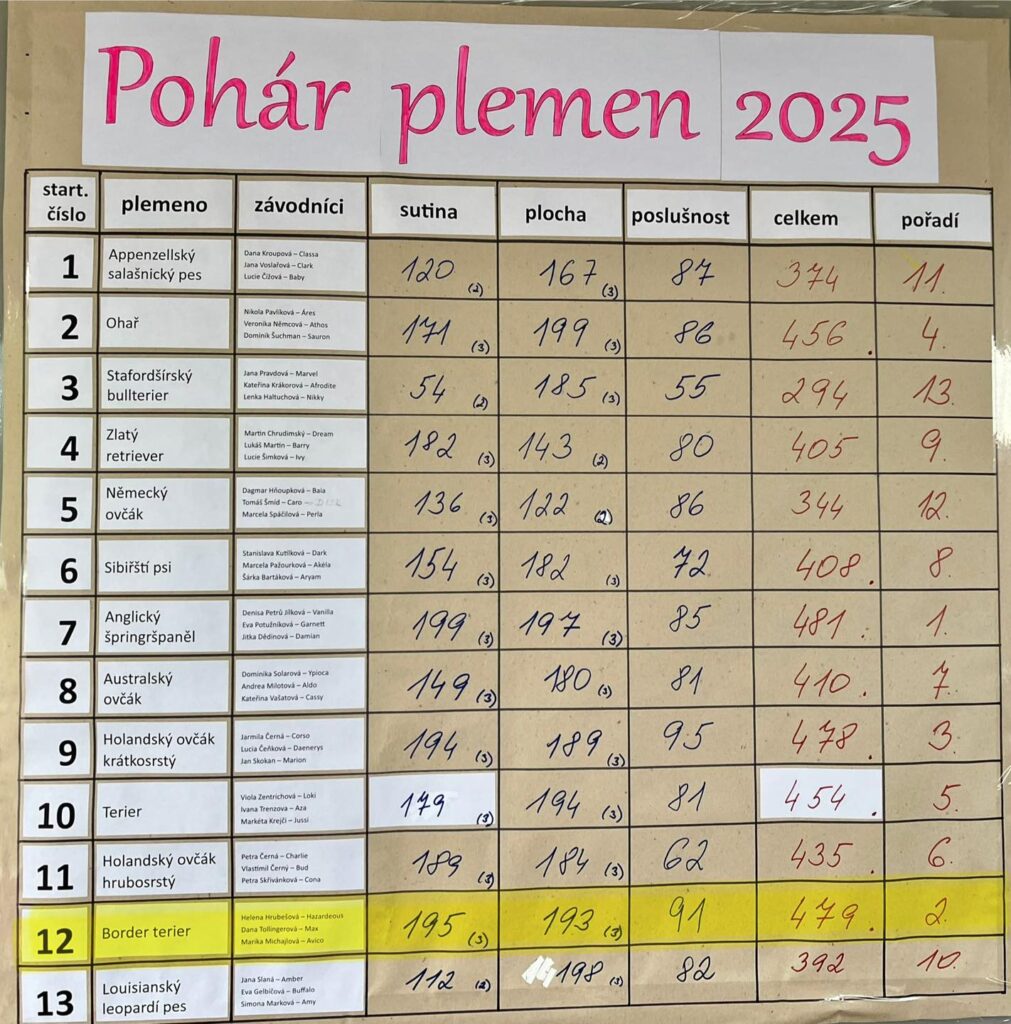 Pohár plemen 2025
start. číslo plemeno závodníci sutina plocha poslušnost celkem pořadí
1 Appenzellský salašnický pes Dana Kroupová – Classa Jana Voslařová – Clark Lucie Čížová – Baby 120 (2) 167 (3) 87 374 11.
2 Ohař Nikola Pavlíková – Áres Veronika Němcová – Athos Dominik Šuchman – Sauron 171 (3) 199 (3) 86 456. 4.
3 Stafordšírský bullterier Jana Pravdová – Marvel Kateřina Krákorová – Afrodite Lenka Haltuchová – Nikky 54 (2) 185 (3) 55 294 13.
4 Zlatý retriever Martin Chrudimský – Dream Lukáš Martin – Barry Lucie Šimková – Ivy 182 (3) 143 (2) 80 405 9.
5 Německý ovčák Dagmar Hňoupková – Baia Tomáš Šmíd – Caro Marcela Spáčilová – Perla 136 (3) 122 (2) 86 344 12.
6 Sibiřští psi Stanislava Kutilková – Dark Marcela Pažourková – Akéla Šárka Bartáková – Aryam 154 (3) 182 (3) 72 408. 8.
7 Anglický špringršpaněl Denisa Petrů Jílková – Vanilla Eva Potužníková – Garnett Jitka Dědinová – Damian 199 (3) 197 (3) 85 481. 1.
8 Australský ovčák Dominika Solarová – Ypioca Andrea Milotová – Aldo Kateřina Vašatová – Cassy 149 (3) 180 (3) 81 410. 7.
9 Holandský ovčák krátkosrstý Jarmila Černá – Corso Lucia Čeňková – Daenerys Jan Skokan – Marion 194 (3) 189 (3) 95 478. 3.
10 Terier Viola Zentrichová – Loki Ivana Trenzova – Aza Markéta Krejčí – Jussi 179 (3) 194 (3) 81 454. 5.
11 Holandský ovčák hrubosrstý Petra Černá – Charlie Vlastimil Černý – Bud Petra Skřivánková – Cona 189 (3) 184 (3) 62 435. 6.
12 Border terier Helena Hrubešová – Hazardeous Dana Tollingerová – Max Marika Michajlová – Avico 195 (3) 193 (3) 91 479. 2.
13 Louisianský leopardí pes Jana Slaná – Amber Eva Gelbičová – Buffalo Simona Marková – Amy 112 (2) 198 (3) 82 392 10.